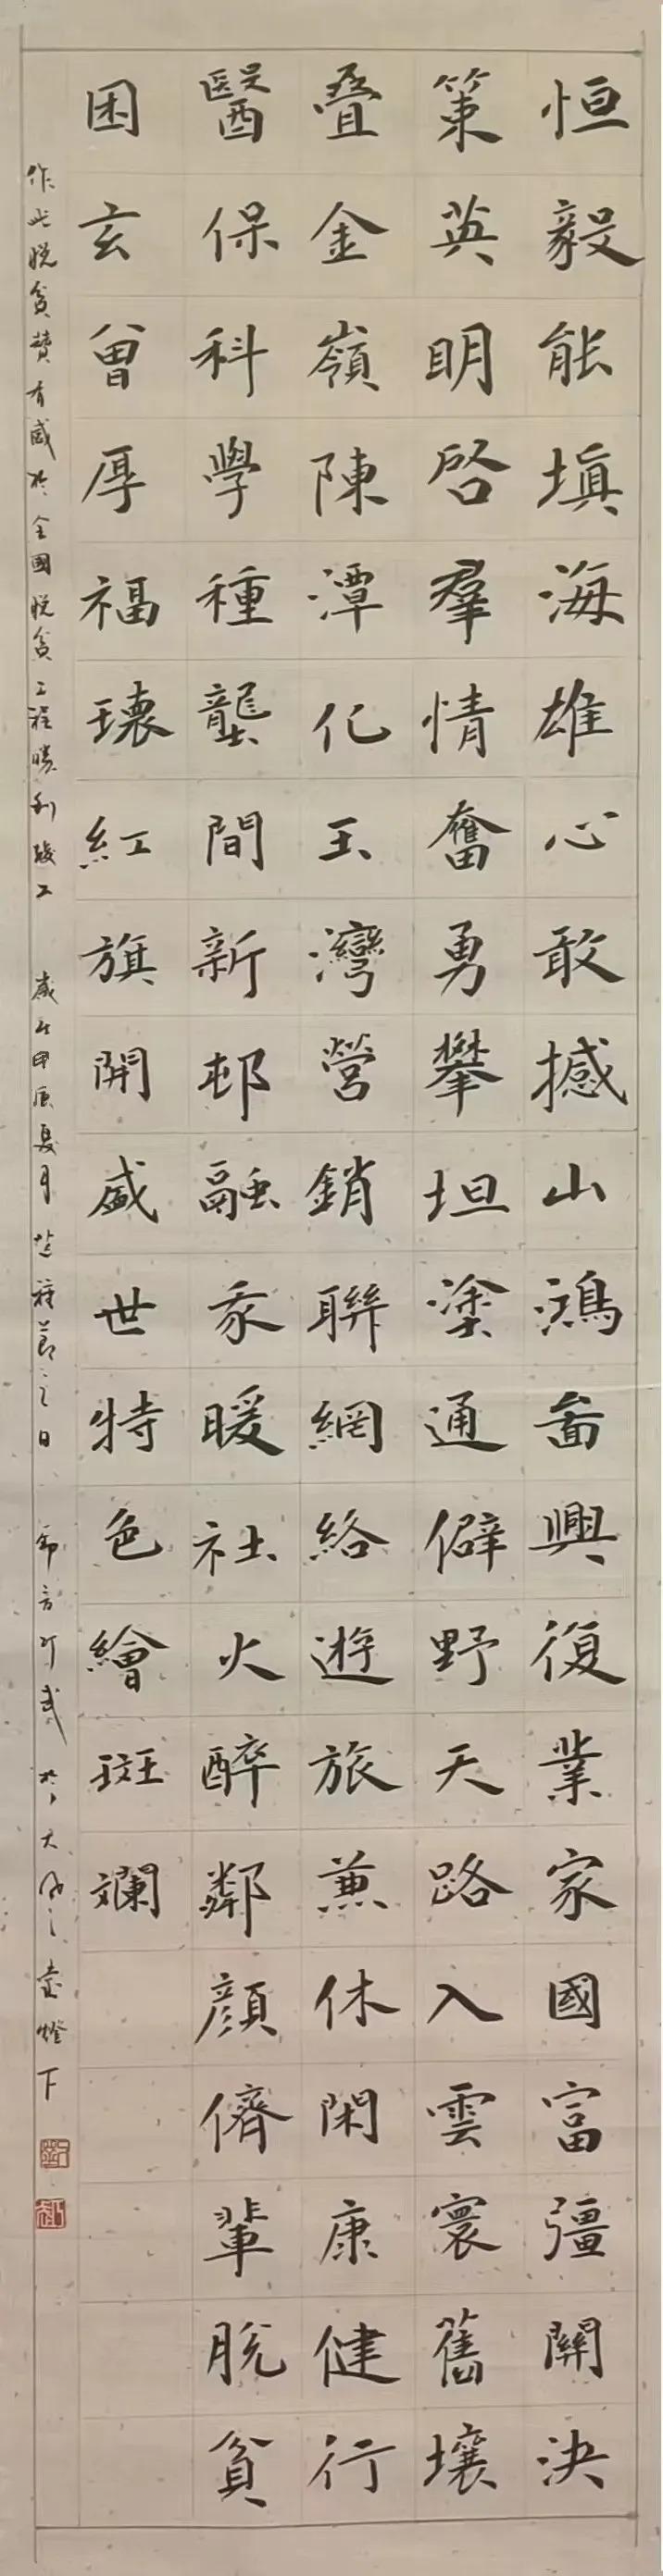 恒毅能填海雄心敢撼山鴻啚興復業家國富彊關決
策英明啓羣情奮勇攀坦塗通僻野天路入雲寰舊壤
叠金嶺陳潭化玉灣營銷聯網絡遊旅兼休閑康健行
醫保科學種壟間新邨融暖社火醉鄰顔儕輩脫貧
困玄曾厚福環紅旗開盛世特色繪斑斕
作此脫貧贊有感於全國脫貧工程勝利竣工 歲在甲辰夏月芒種節之日 於大堂燈下